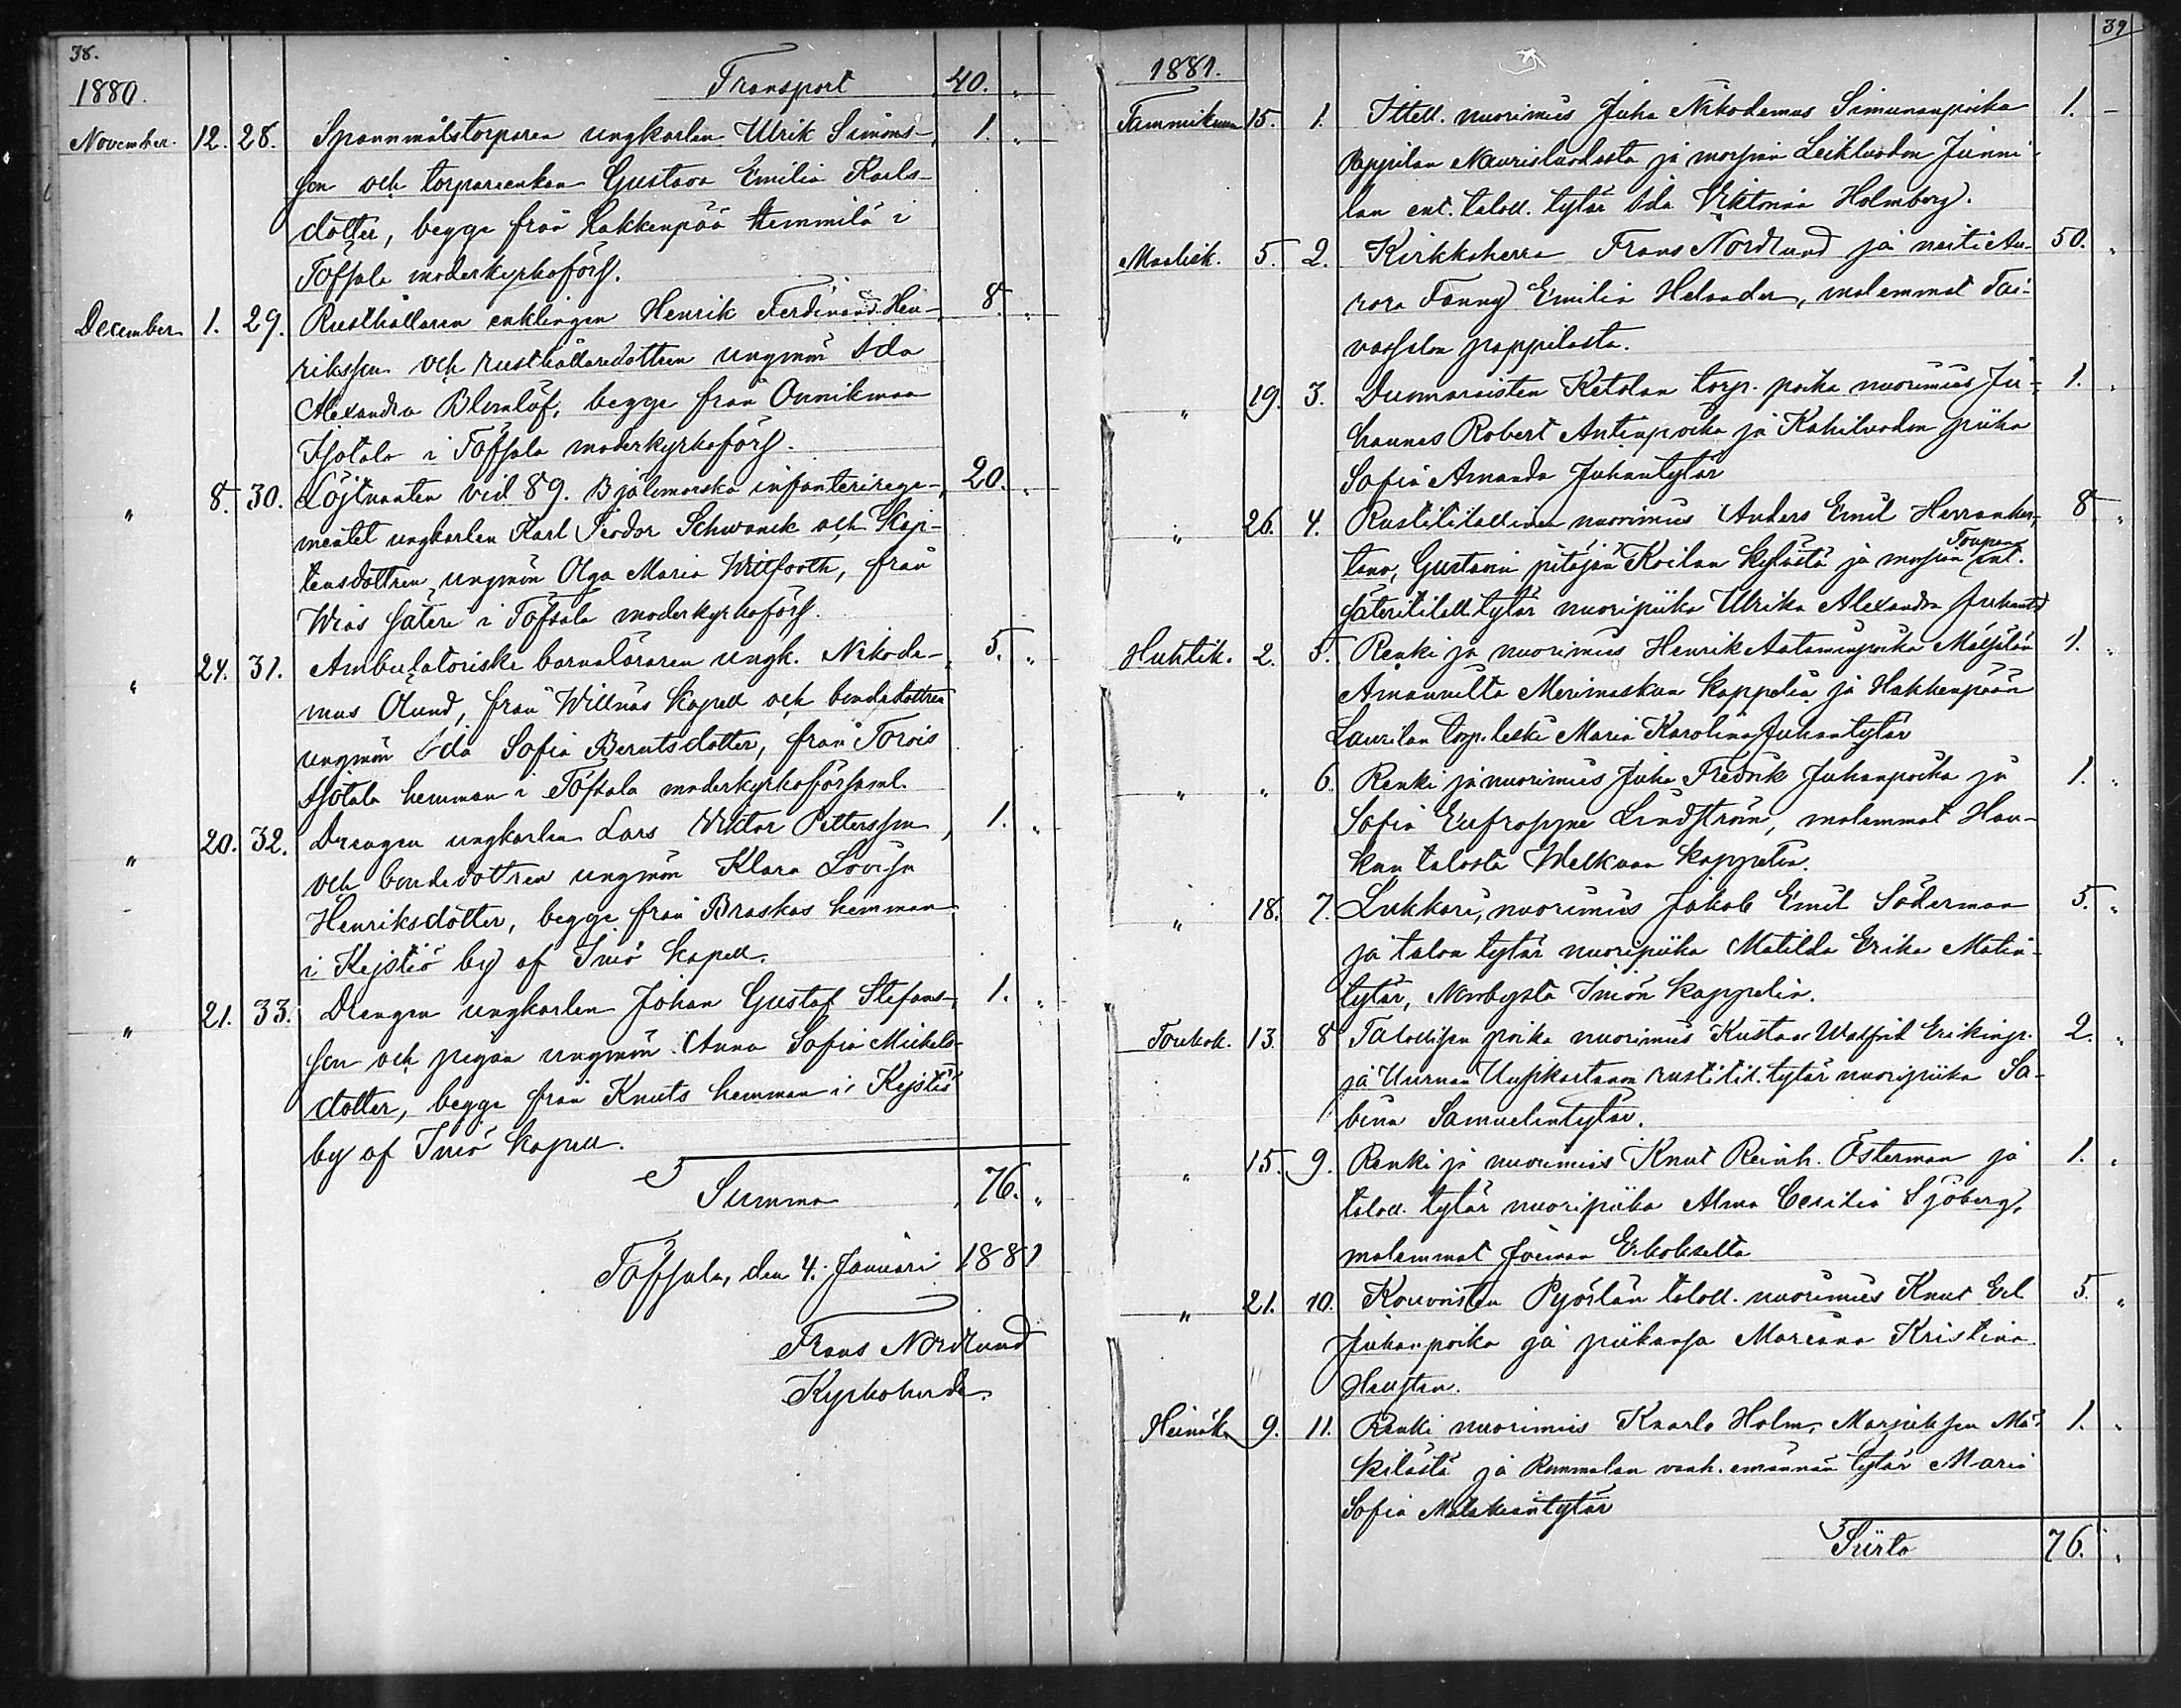 38.
1880. Transport 40. "
November. 12. 28. Spannmålstorparen ungkarlen Ulrik Simons- 1. "
son och torpareenkan Gustava Emilia Karls-
dotter, begge från Hakkenpää Hemmilä i
Töfsala moderkyrkoförs.
December 1. 29. Rusthållaren enklingen Henrik Ferdinand Hen- 8. "
riksson och rusthållaredottren ungmön Ida
Alexandra Blomlöf, begge från Onnikmaa
Isotalo i Töfsala moderkyrkoförs.
" 8. 30. Löjtnanten vid 89. Bjälomorska infanterirege- 20. "
mentet ungkarlen Karl Teodor Schwanck och Kap-
tensdottren ungmön Olga Maria Wittfooth, från
Wias säteri i Töfsala moderkyrkoförs.
" 24. 31. Ambulatoriske barnaläraren ungk. Nikode- 5. "
mus Ölund, från Willnäs Kapell och bondedottren
ungmön Ida Sofia Berntsdotter, från Torois
Isotalo hemman i Töfsala moderkyrkoförsaml.
" 20. 32. Drengen ungkarlen Lars Viktor Pettersson, 1. "
och bondedottren ungmön Klara Lovisa
Henriksdotter, begge från Braskas hemman
i Kejstiö by af Iniö Kapell.
" 21. 33. Drengen ungkarlen Johan Gustaf Stefans- 1. "
son och pigan ungmön Anna Sofia Mickels-
dotter, begge från Knuts hemman i Kejstiö
by af Iniö Kapell.
Summa 76. "
Töfsala, den 4. Januari 1881
Frans Nordlund
Kyrkoherde.
39
1881.
Tammikuun 15. 1. Ittell. nuorimies Juha Nikodemus Simunanpoika 1. -
Pappilan Naurisluodosta ja morsian Leikluodon Junni-
lan ent. taloll. tytär Ida Viktoria Holmberg.
Maalisk. 5. 2. Kirkkoherra Frans Nordlund ja neiti Au- 50. "
rora Fanny Emilia Helander, molemmat Tai-
vassalon pappilasta.
" 19. 3. Dunmaraisten Ketolan torp. poika nuorimies Ju- 1. "
hannes Robert Antinpoika ja Kahiluodon piika
Sofia Amanda Juhantytär
" 26. 4. Rustitilallinen nuorimies Anders Emil Herrankar- 8. "
tano, Gustavin pitäjän Koilan kylästä ja morsian ent.
säteritilall. tytär nuoripiika Ulrika Alexandra Juhant.
Huhtik. 2. 5. Renki ja nuorimies Henrik Aataminpoika Mälsilän 1. "
Amanuilta Merimaskun Kappelia ja Hakkenpään
Laurilan torp. leski Maria Karolina Juhantytär
" " 6. Renki ja nuorimies Juha Fredrik Juhanpoika ja 1. "
Sofia Eufrosyne Lindström, molemmat Hau-
kan talosta Welkuan Kappelia.
" 18. 7. Lukkari, nuorimies Jakob Emil Söderman 5. "
ja talon tytär nuoripiika Matilda Erika Matin-
tytär, Norrbystä Iniön Kappelia.
Toukok. 13. 8 Talollisen poika nuorimies Kustaa Walfrid Erikinp. 2. "
ja Uurnan Uusikartanon rustitil. tytär nuoripiika Sa-
bina Samuelintytär.
" 15. 9. Renki ja nuorimies Knut Reinh. Österman ja 1. "
taloll. tytär nuoripiika Alma Cecilia Sjöberg,
molemmat Erkoksetta
" 21. 10. Kouvoisten Pyörlän taloll. nuorimies Knut Eel 5. "
Juhanpoika ja piikansa Mareana Kristina
Hausten.
Heinäk. 9. 11. Renki nuorimies Knarlo Holm, Marjuksen Mä- 1. "
kilästä ja Rummalan vanh. emännän tytär Maria
Sofia Malakiantytär
Siirto 76. "